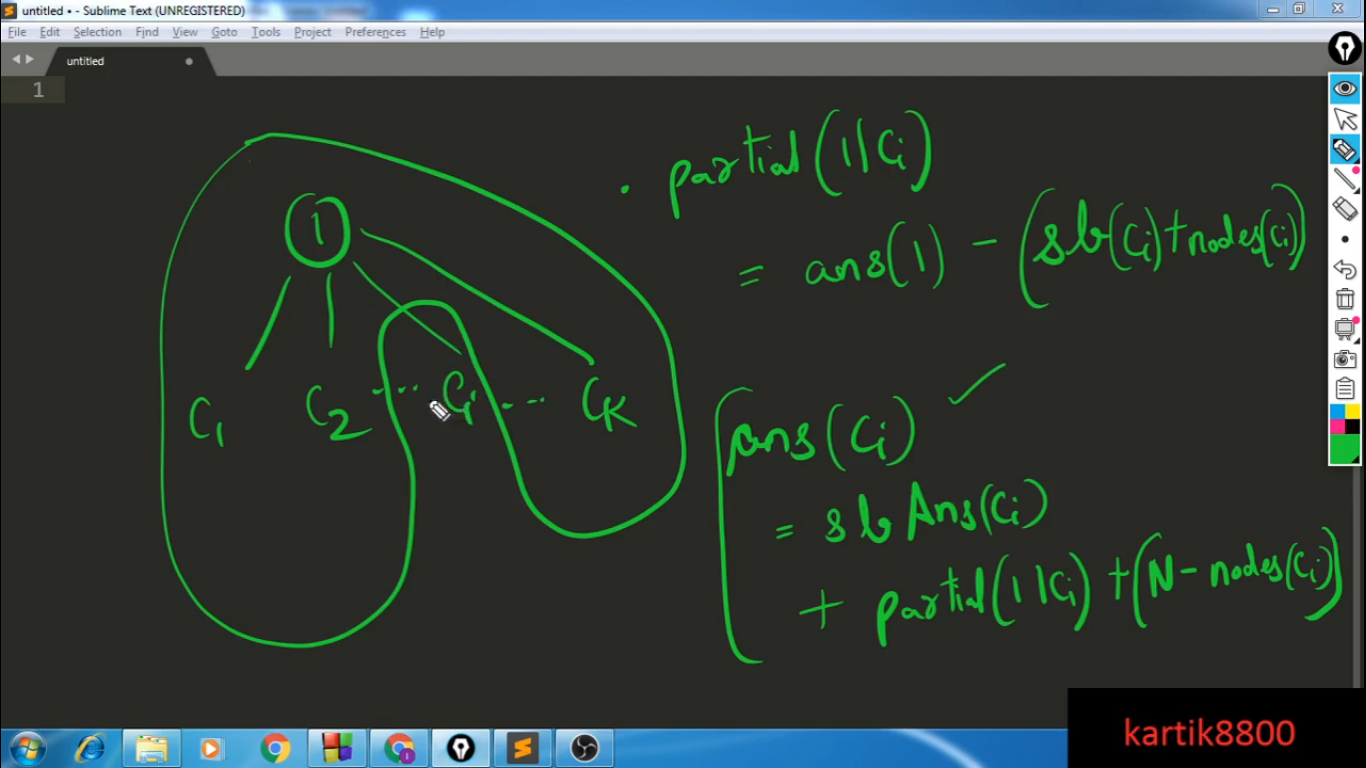 untitled • - Sublime Text (UNREGISTERED)
File Edit Selection Find View Goto Tools Project Preferences Help
untitled
1
1
C1 C2 ... Ci ... CK
· partial (1|Ci)
= ans(1) - (sb(Ci)+nodes(Ci))
ans(Ci)
= sb Ans(Ci)
+ partial(1|Ci) + (N - nodes(Ci))
kartik8800